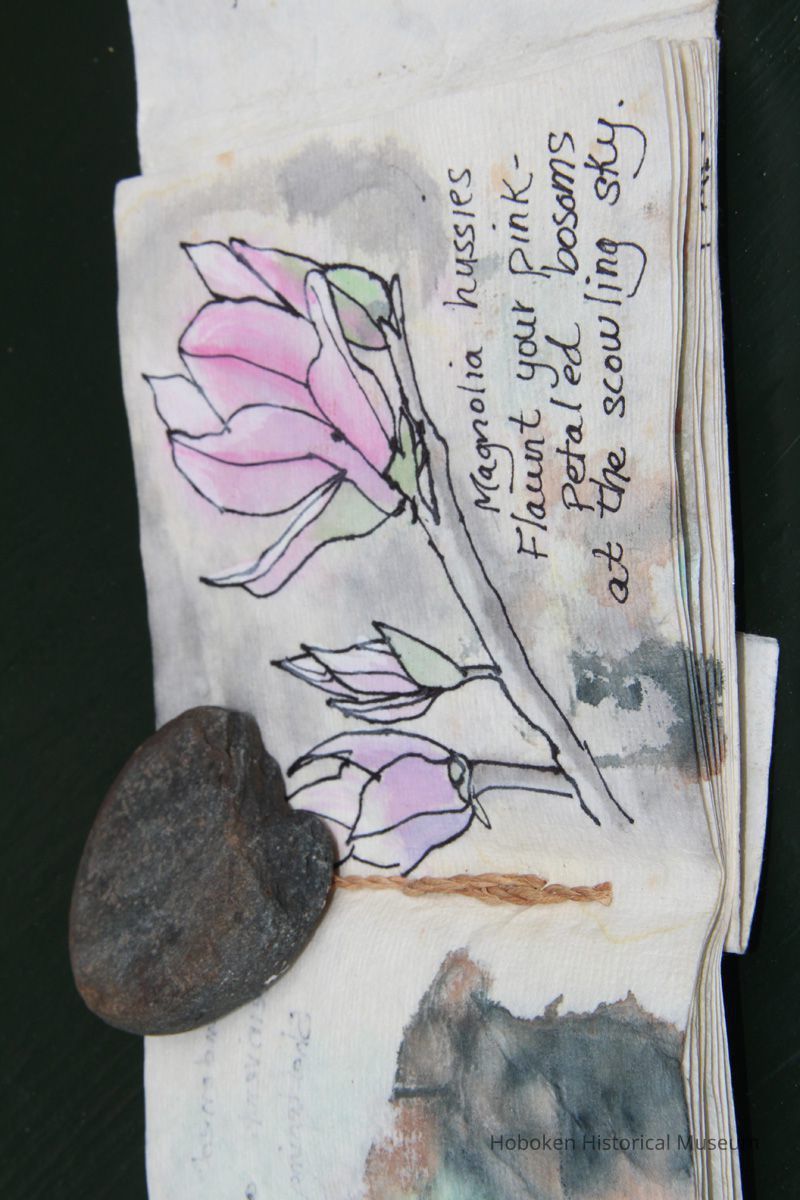 Magnolia hussies
Flaunt your pink-
Petaled bosoms
at the scowling sky.
Hoboken Historical Museum